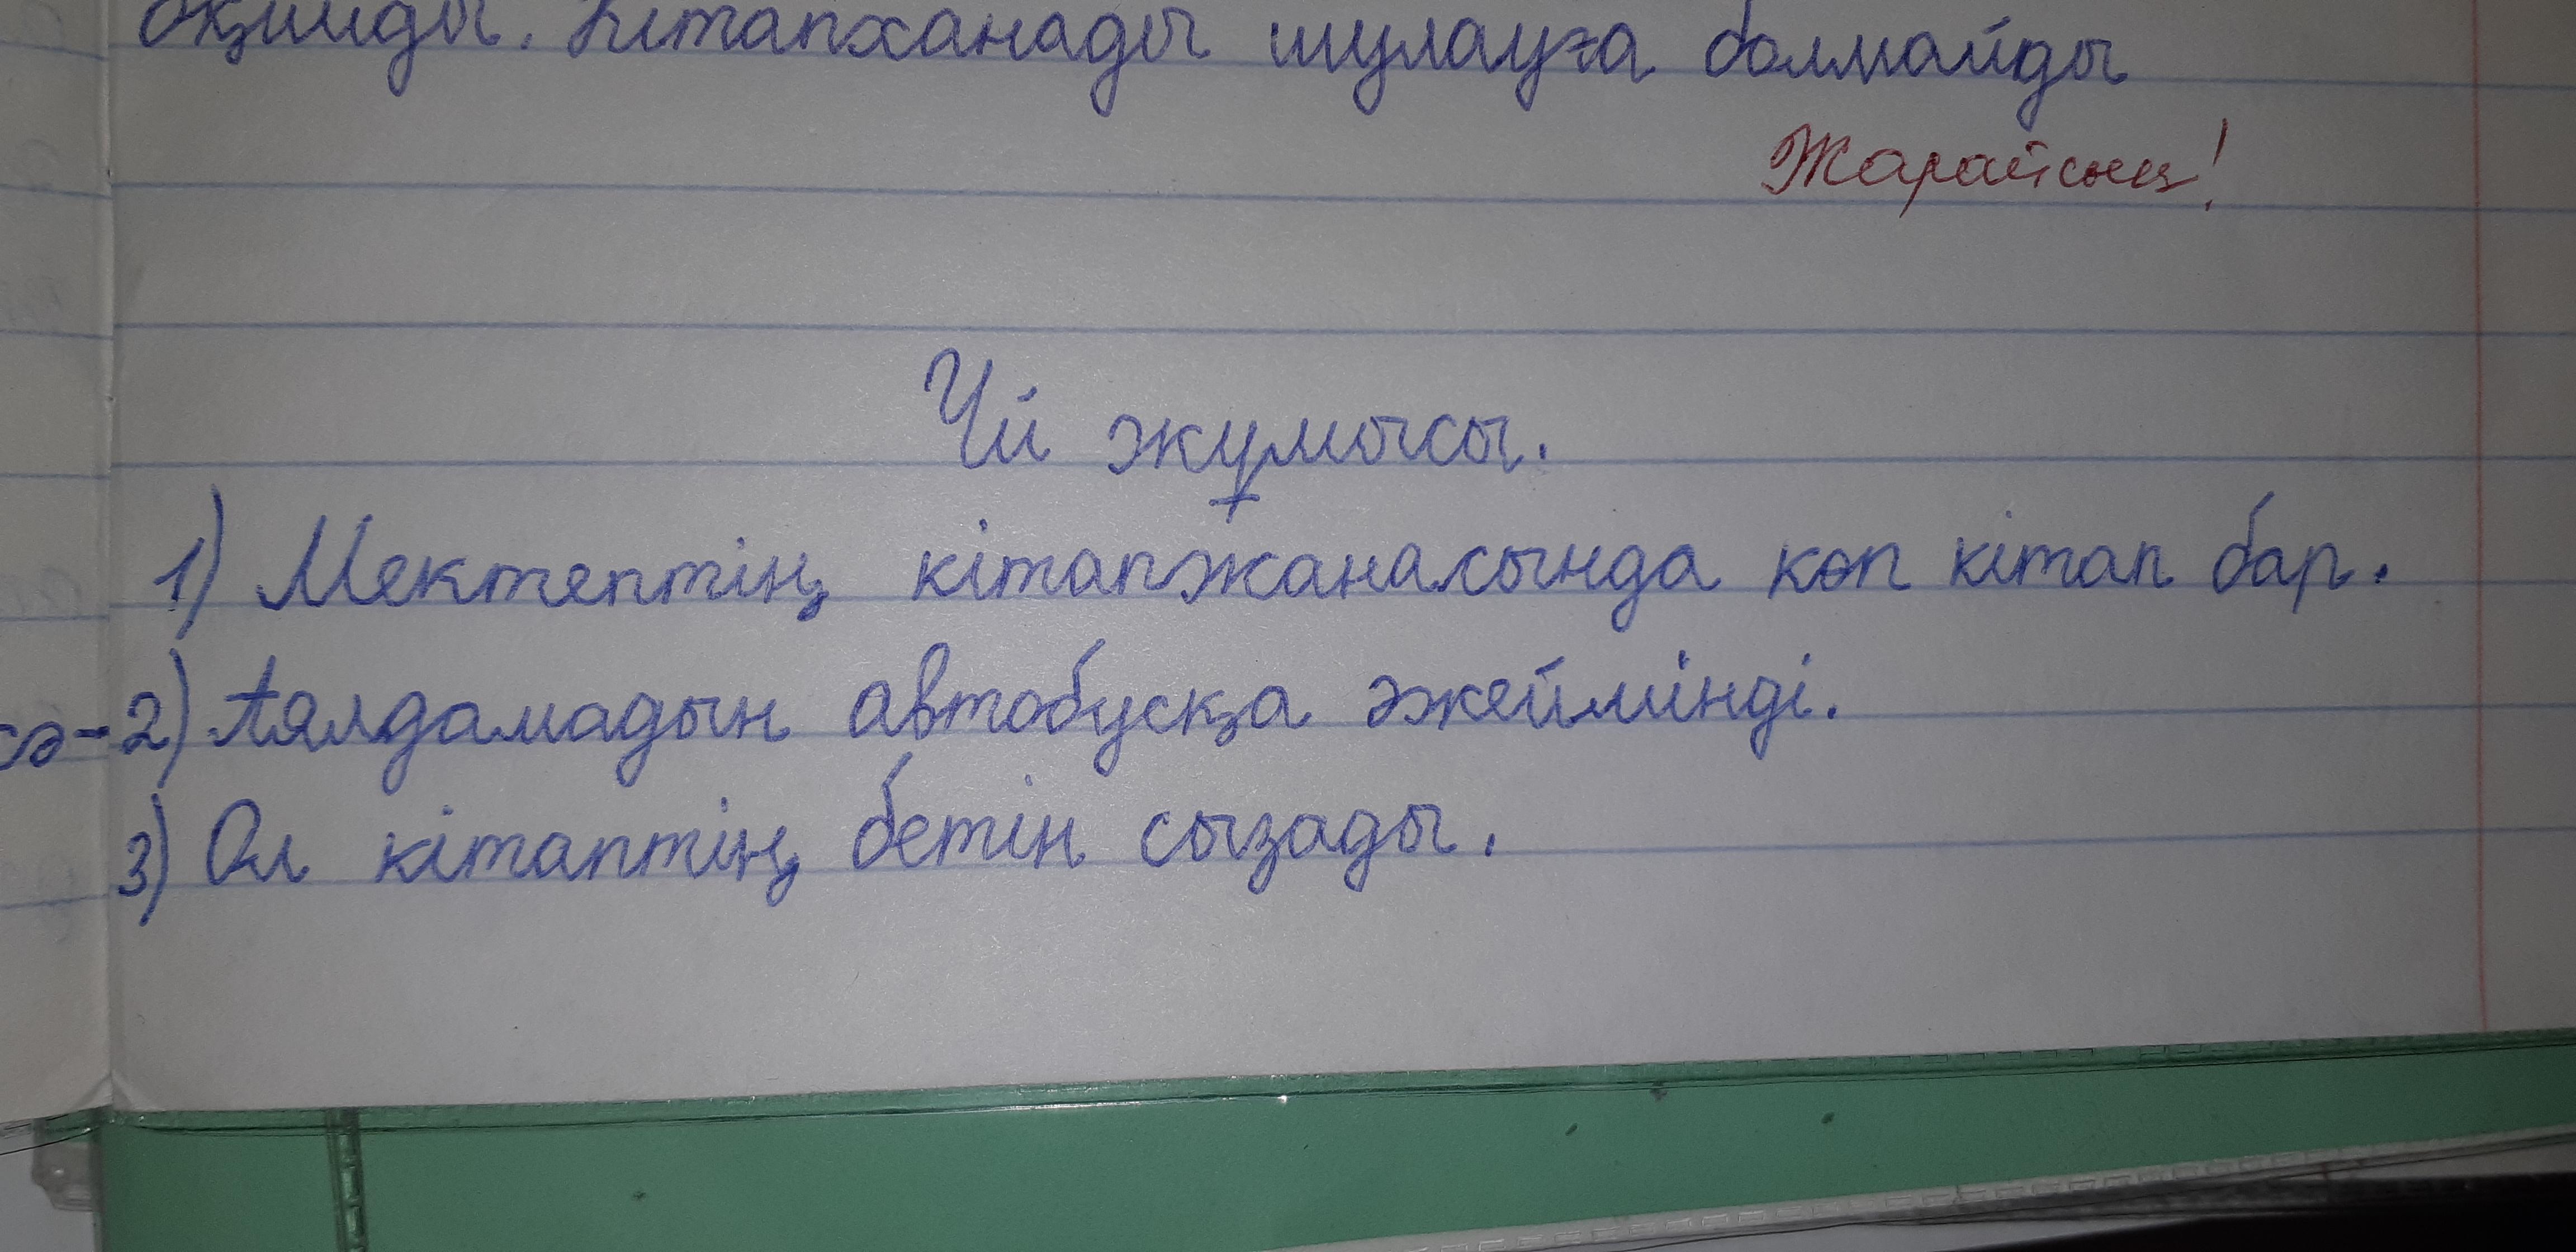 оқииды. Кітапханады шулауға болмайды
Жарайсың!
Үй жұмысы.
1) Мектептің кітапжанасында көп кітап бар.
2) Аялдамадын автобусқа әжеймінді.
3) Ол кітаптің бетін сызады.